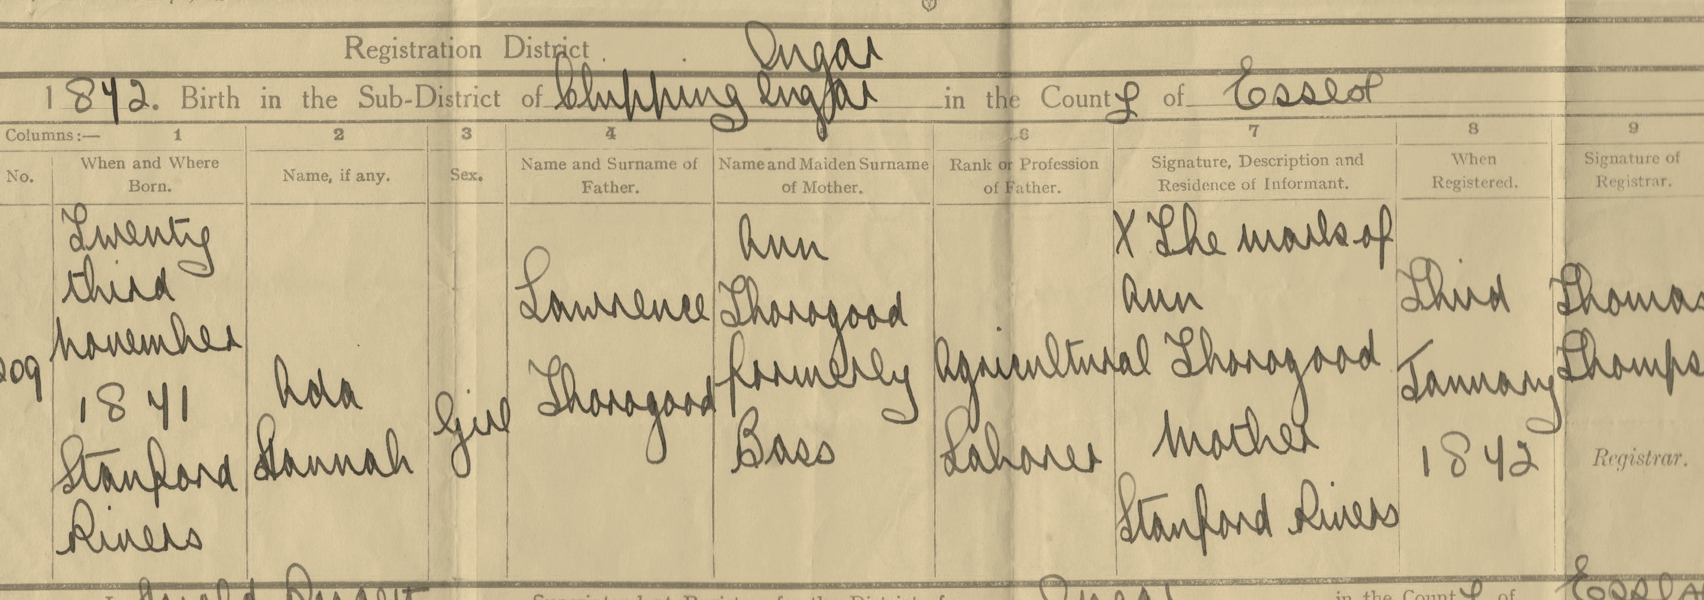 Registration District Ongar
1842. Birth in the Sub-District of Chipping Ongar in the County of Essex
Columns:— 1 2 3 4 6 7 8 9
No. When and Where Born. Name, if any. Sex. Name and Surname of Father. Name and Maiden Surname of Mother. Rank or Profession of Father. Signature, Description and Residence of Informant. When Registered. Signature of Registrar.
209
Twenty
third
November
1841
Stanford
Rivers
Ada
Hannah
Girl
Lawrence
Thorogood
Ann
Thorogood
formerly
Bass
Agricultural
Labourer
X The mark of
Ann
Thorogood
Mother
Stanford Rivers
Third
January
1842
Thomas
Registrar.
in the County of